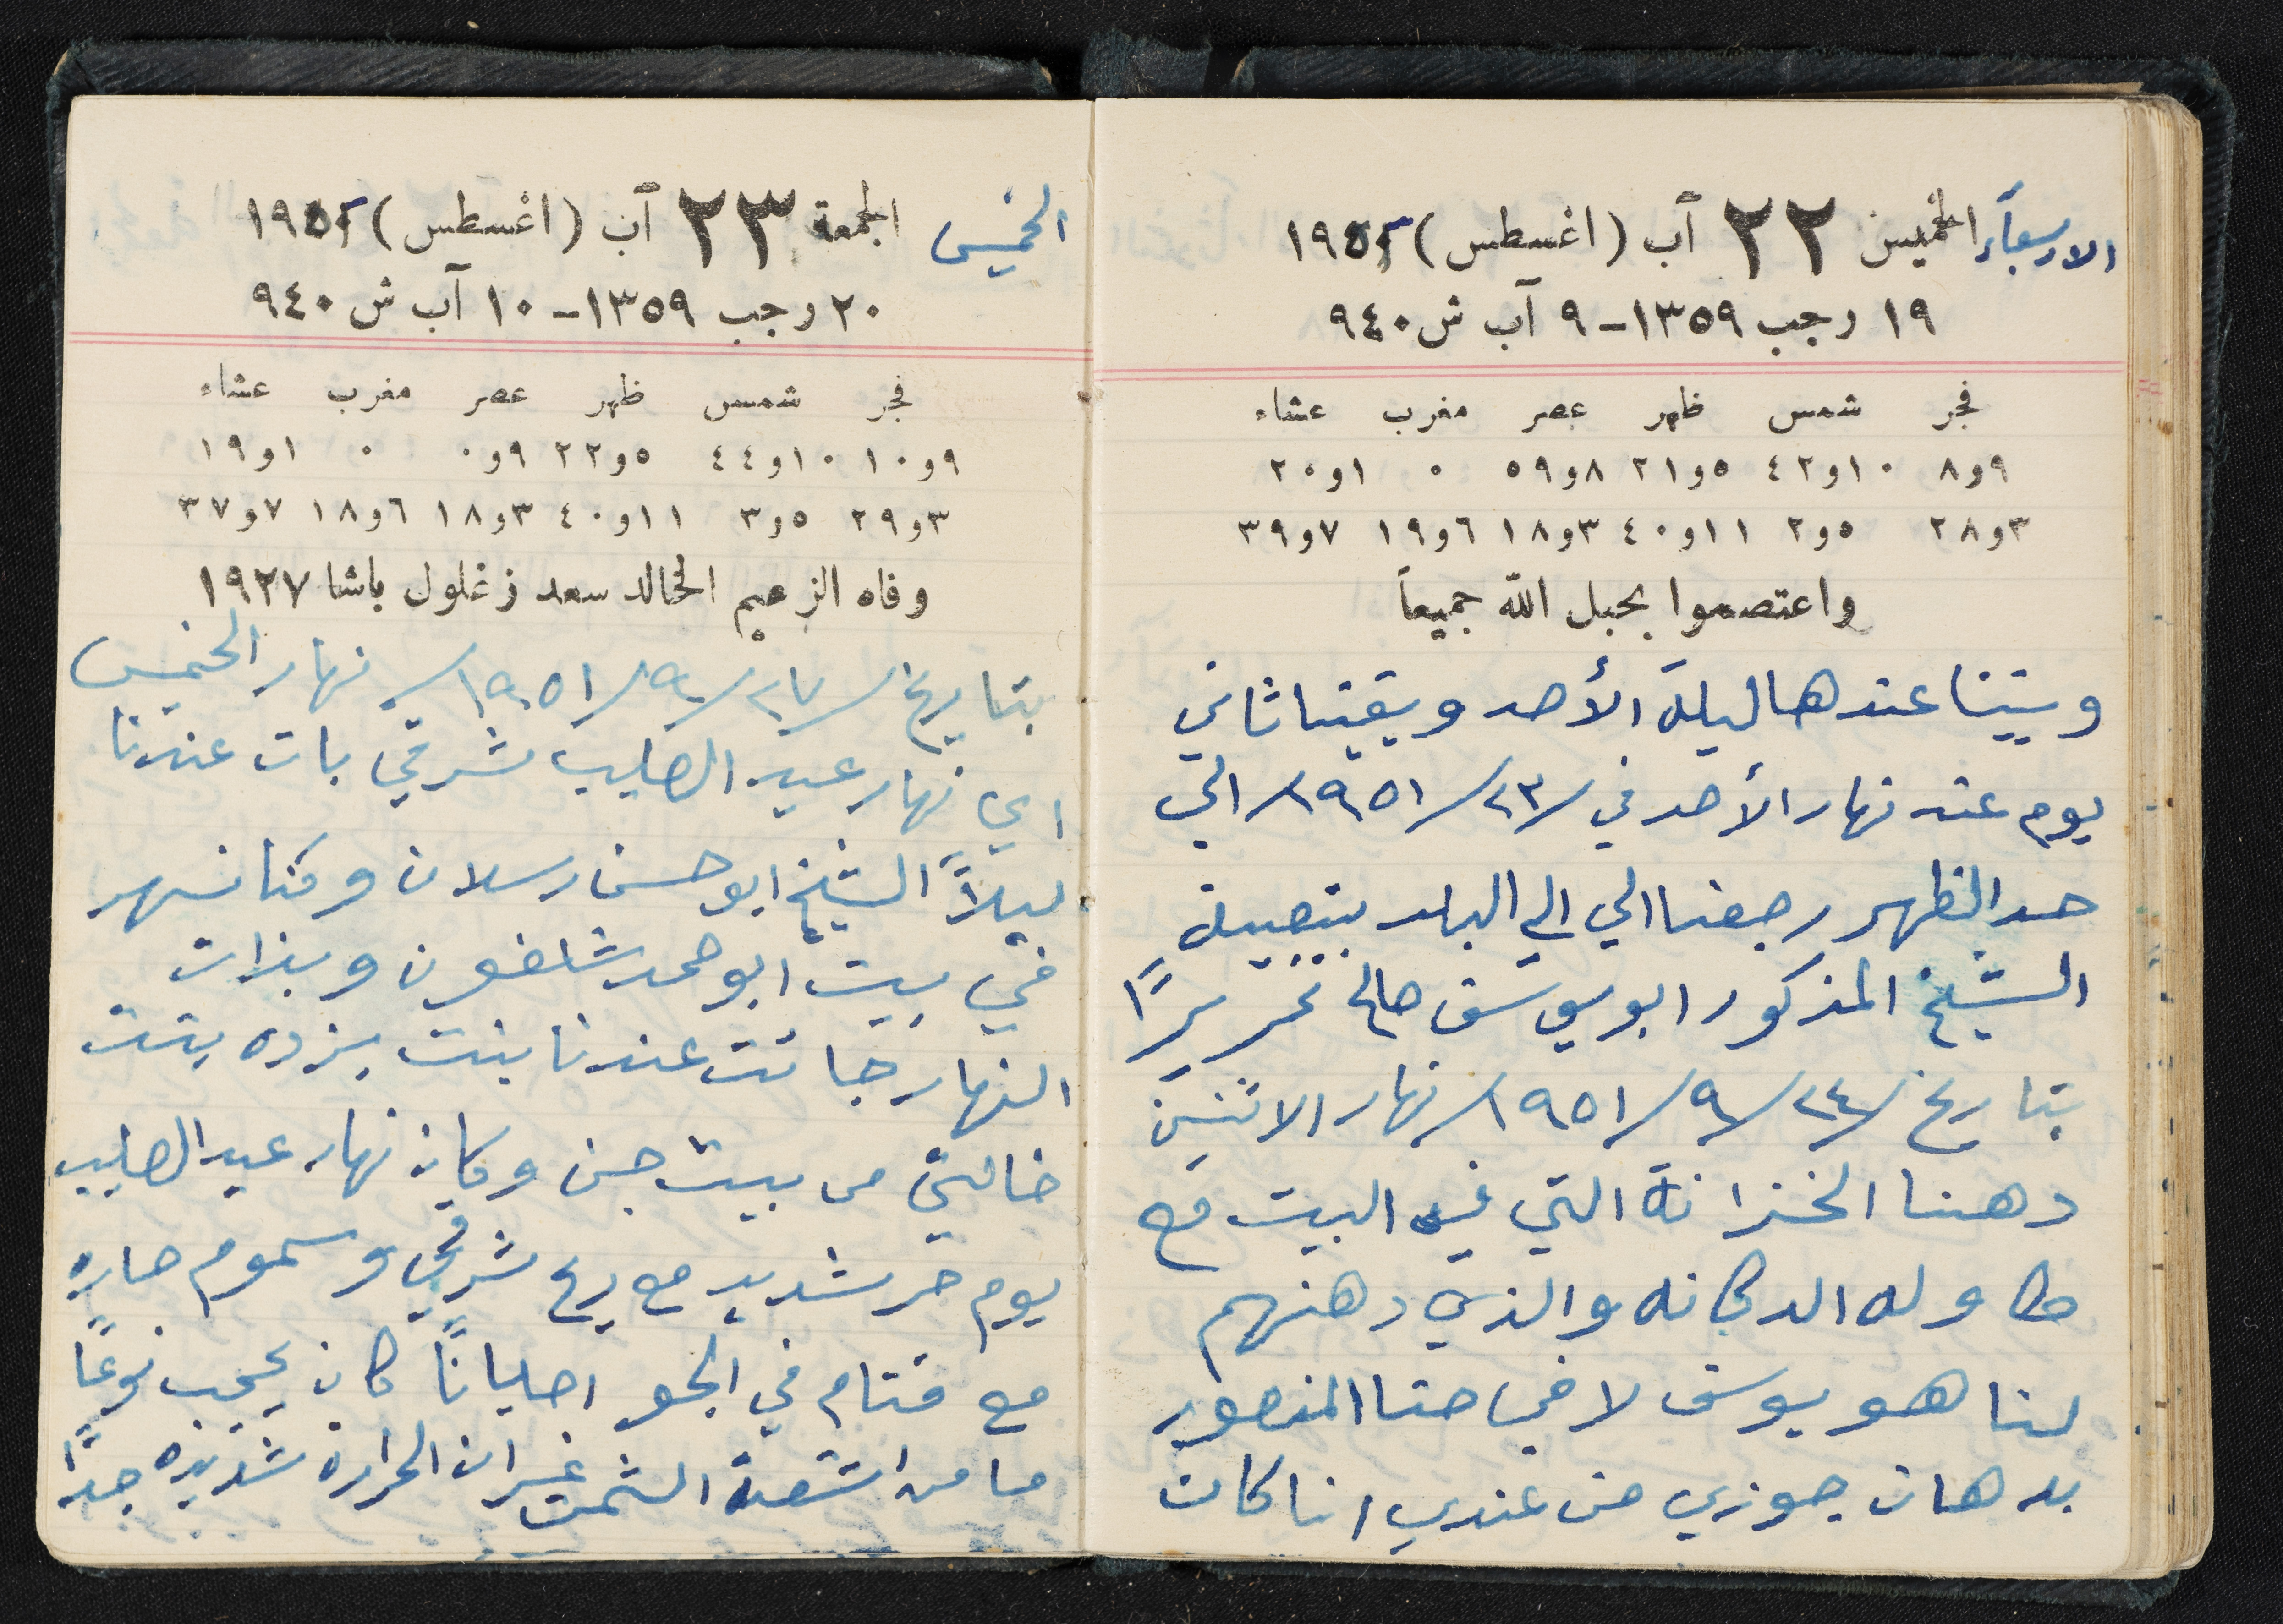 الاربعاء الخميس ٢٢ آب (اغسطس) ١٩٥١
١٩ رجب ١٣٥٩-٩ آب ش ٩٤٠
فجر شمس ظهر عصر مغرب عشاء
٩و٨ ١٠و٤٢ ٥و٢١ ٨و٥٩ ٠ ١و٢٠
٣و٢٨ ٥و٢ ١١و٤٠ ٣و١٨ ٦و١٩ ٧و٣٩
واعتصموا بحبل الله جميعاً
وبيتنا عندها ليلة الأحد وبقينا ثاني
يوم عنده نهار الأحد في /٢٣/ ١٩٥١/ الي
حد الظهر رجعنا الي الي البلد بتوصيلة
الشيخ المذكور ابو يوسف صالح تحريرًا
بتاريخ /٢٤/ ٩/ ١٩٥١/ نهار الاثنين
دهنا الخزانة التي في البيت مع
طاوله الدكانه والذي دهنهم
لنا هو يوسف لافي حنا المنصور
بدهان جوزي من عندي انا كانت
الخميس الجمعة ٢٣ آب (اغسطس) ١٩٥١
٢٠ رجب ١٣٥٩-١٠ آب ش ٩٤٠
فجر شمس ظهر عصر مغرب عشاء
٩و١٠ ١٠و٤٤ ٥و٢٢ ٩و٠ ٠ ١و١٩
٣و٢٩ ٥و٣ ١١و٤٠ ٣و١٨ ٦و١٨ ٧و٣٧
وفاه الزعيم الخالد سعد زغلول باشا ١٩٢٧
بتاريخ /٢٧/ ٩/ ١٩٥١/ نهار الخميس
اي نهار عيد الصليب شرقي بات عندنا
ليلاً الشيخ ابو حسن رسلان وكنا نسهر
في بيت ابو حمد شلفون وبذات
النهار جائت عندنا بنت بزده بنت
خالتي من بيت جن وكان نهار عيد الصليب
يوم حر شديد مع ريح شرقي وسموم حاره
مع قتام في الجو احيانًا كان يحجب نوعًا
ما من اشعة الشمس غير ان الحرارة شديده جدًا